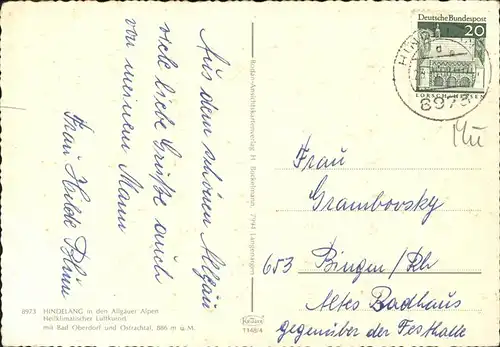 Aus dem schönen Allgäu
viele liebe Grüße auch
von meinem Mann
Frau Hilde
8973 HINDELANG in den Allgäuer Alpen
Heilklimatischer Luftkurort
mit Bad Oberdorf und Ostrachtal, 886 m ü. M.
H. Buckelmann 7941 Langenenslingen
1148/4
Deutsche Bundespost
20
LORSCH/HESSEN
HIND
8973
Frau
Grambovsky
653 Bingen/Rh
Altes Badhaus
gegenüber der Festhalle